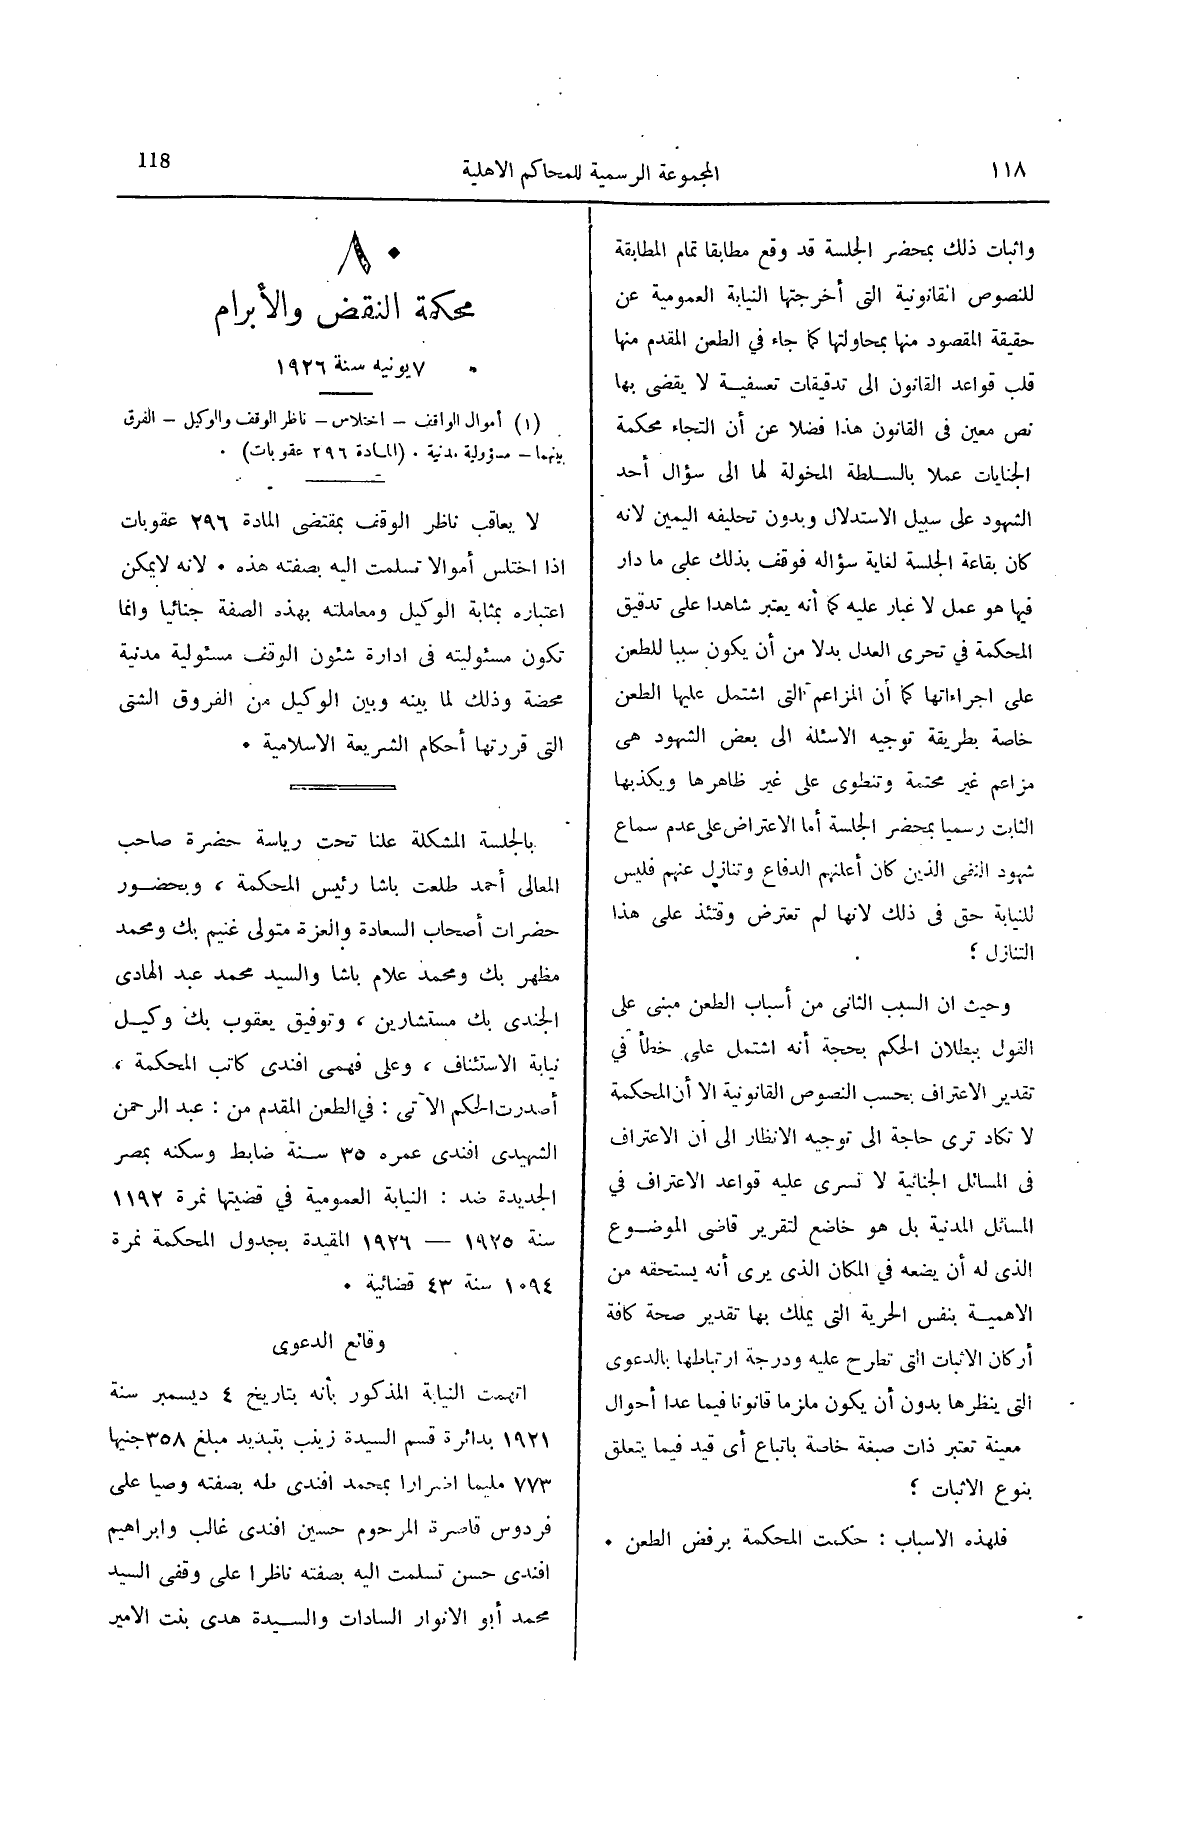 ١١٨
المجموعة الرسمية للمحاكم الاهلية
118
واثبات ذلك بمحضر الجلسة قد وقع مطابقا تمام المطابقة
للنصوص القانونية التى أخرجتها النيابة العمومية عن
حقيقة المقصود منها بمحاولتها كما جاء في الطعن المقدم منها
قلب قواعد القانون الى تدقيقات تعسفية لا يقضى بها
نص معين فى القانون هذا فضلا عن أن التجاء محكمة
الجنايات عملا بالسلطة المخولة لها الى سؤال أحد
الشهود على سبيل الاستدلال وبدون تحليفه اليمين لانه
كان بقاعة الجلسة لغاية سؤاله فوقف بذلك على ما دار
فيها هو عمل لا غبار عليه كما أنه يعتبر شاهدا على تدقيق
المحكمة في تحرى العدل بدلا من أن يكون سببا للطعن
على اجراءاتها كما أن المزاعم التى اشتمل عليها الطعن
خاصة بطريقة توجيه الاسئلة الى بعض الشهود هى
مزاعم غير محتمة وتنطوى على غير ظاهرها ويكذبها
الثابت رسميا بمحضر الجلسة أما الاعتراض على عدم سماع
شهود النفى الذين كان أعلنهم الدفاع وتنازل عنهم فليس
للنيابة حق فى ذلك لانها لم تعترض وقتئذ على هذا
التنازل ؟
وحيث ان السبب الثانى من أسباب الطعن مبنى على
القول ببطلان الحكم بحجة أنه اشتمل على خطأ في
تقدير الاعتراف بحسب النصوص القانونية الا أن المحكمة
لا تكاد ترى حاجة الى توجيه الانظار الى أن الاعتراف
فى المسائل الجنائية لا تسرى عليه قواعد الاعتراف في
المسائل المدنية بل هو خاضع لتقرير قاضى الموضوع
الذى له أن يضعه في المكان الذى يرى أنه يستحقه من
الاهمية بنفس الحرية التى يملك بها تقدير صحة كافة
أركان الاثبات التى تطرح عليه ودرجة ارتباطها بالدعوى
التى ينظرها بدون أن يكون ملزما قانونا فيما عدا أحوال
معينة تعتبر ذات صبغة خاصة باتباع أى قيد فيما يتعلق
بنوع الاثبات ؟
فلهذه الاسباب : حكمت المحكمة برفض الطعن ٠
٨٠
محكمة النقض والأبرام
٧ يونيه سنة ١٩٢٦
(١) أموال الواقف – اختلاس – ناظر الوقف والوكيل – الفرق
بينهما – مسؤولية مدنية ٠ (المادة ٢٩٦ عقوبات) ٠
لا يعاقب ناظر الوقف بمقتضى المادة ٢٩٦ عقوبات
اذا اختلس أموالا تسلمت اليه بصفته هذه ٠ لانه لايمكن
اعتباره بمثابة الوكيل ومعاملته بهذه الصفة جنائيا وانما
تكون مسئوليته فى ادارة شئون الوقف مسئولية مدنية
محضة وذلك لما بينه وبين الوكيل من الفروق الشتى
التى قررتها أحكام الشريعة الاسلامية ٠
بالجلسة المشكلة علنا تحت رياسة حضرة صاحب
المعالى أحمد طلعت باشا رئيس المحكمة ، وبحضور
حضرات أصحاب السعادة والعزة متولى غنيم بك ومحمد
مظهر بك ومحمد علام باشا والسيد محمد عبد الهادى
الجندى بك مستشارين ، وتوفيق يعقوب بك وكيل
نيابة الاستئناف ، وعلى فهمى افندى كاتب المحكمة ،
أصدرت الحكم الآتى : في الطعن المقدم من : عبد الرحمن
الشهيدى افندى عمره ٣٥ سنة ضابط وسكنه بمصر
الجديدة ضد : النيابة العمومية في قضيتها نمرة ١١٩٢
سنة ١٩٢٥ — ١٩٢٦ المقيدة بجدول المحكمة نمرة
١٠٩٤ سنة ٤٣ قضائية ٠
وقائع الدعوى
اتهمت النيابة المذكور بأنه بتاريخ ٤ ديسمبر سنة
١٩٢١ بدائرة قسم السيدة زينب بتبديد مبلغ ٣٥٨ جنيها
٧٧٣ مليما اضرارا بمحمد افندى طه بصفته وصيا على
فردوس قاصرة المرحوم حسين افندى غالب وابراهيم
افندى حسن تسلمت اليه بصفته ناظرا على وقفى السيد
محمد أبو الانوار السادات والسيدة هدى بنت الامير